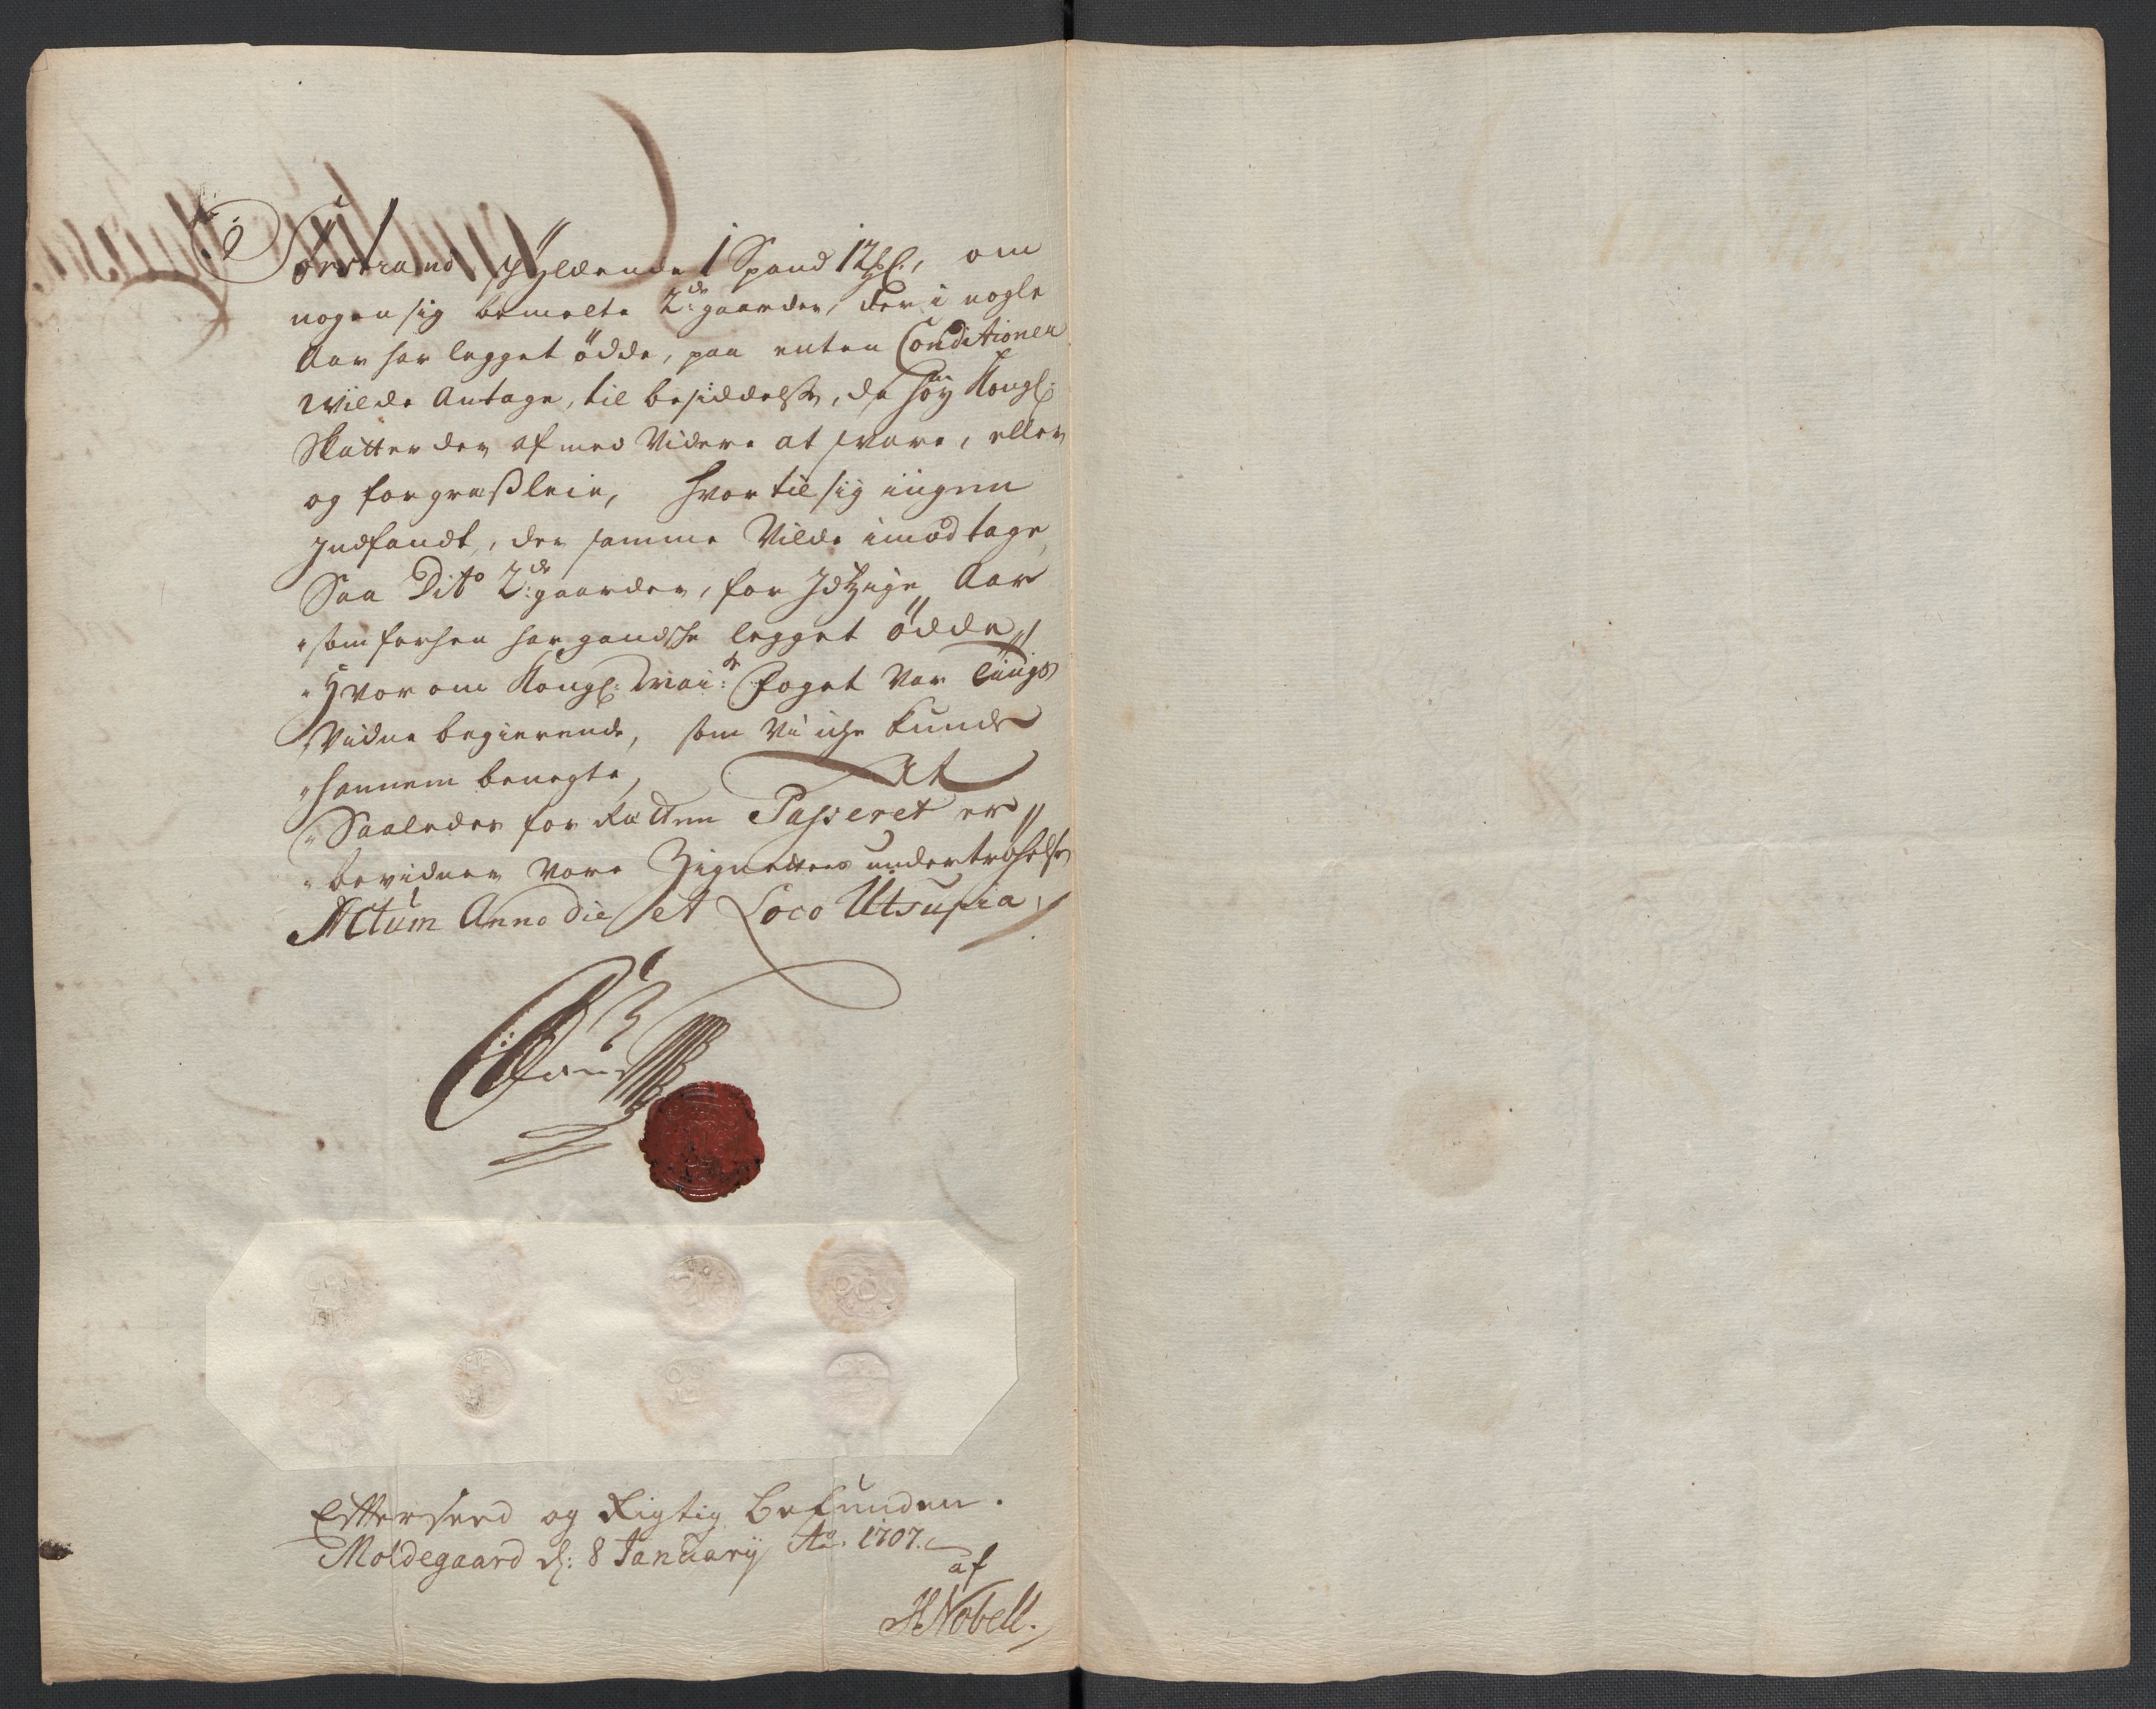 Sørstrand schyldende 1 Spand 12 ℳl., om
nogen sig bemelte 2de: gaarder, der i nogle
Aar har legget ödde, paa enten Conditioner
wilde Antage, til besiddelse, de høy Kongl:
Skatter der af med Videre at svare, eller
og for græsleie, hvortil sig iingen
Indfandt, der samme Vilde imodtage,
Saa Dito 2de: gaarder, for Idtzige Aar
som forhen har gandsche legget ödde,
Hvor om Kongl: Mai:ts foget Var tiings
Vidne begierende, som Vi iche kunde
hannem benegte, At
Saaledes for Retten Passeret er
bevidner Vore Zignetters undertröchelse
Actum Anno die et Loco Utsupia,
Efterseed og Rigtig befunden.
Moldegaard d: 8 January Ao. 1707.
af
HNobell.